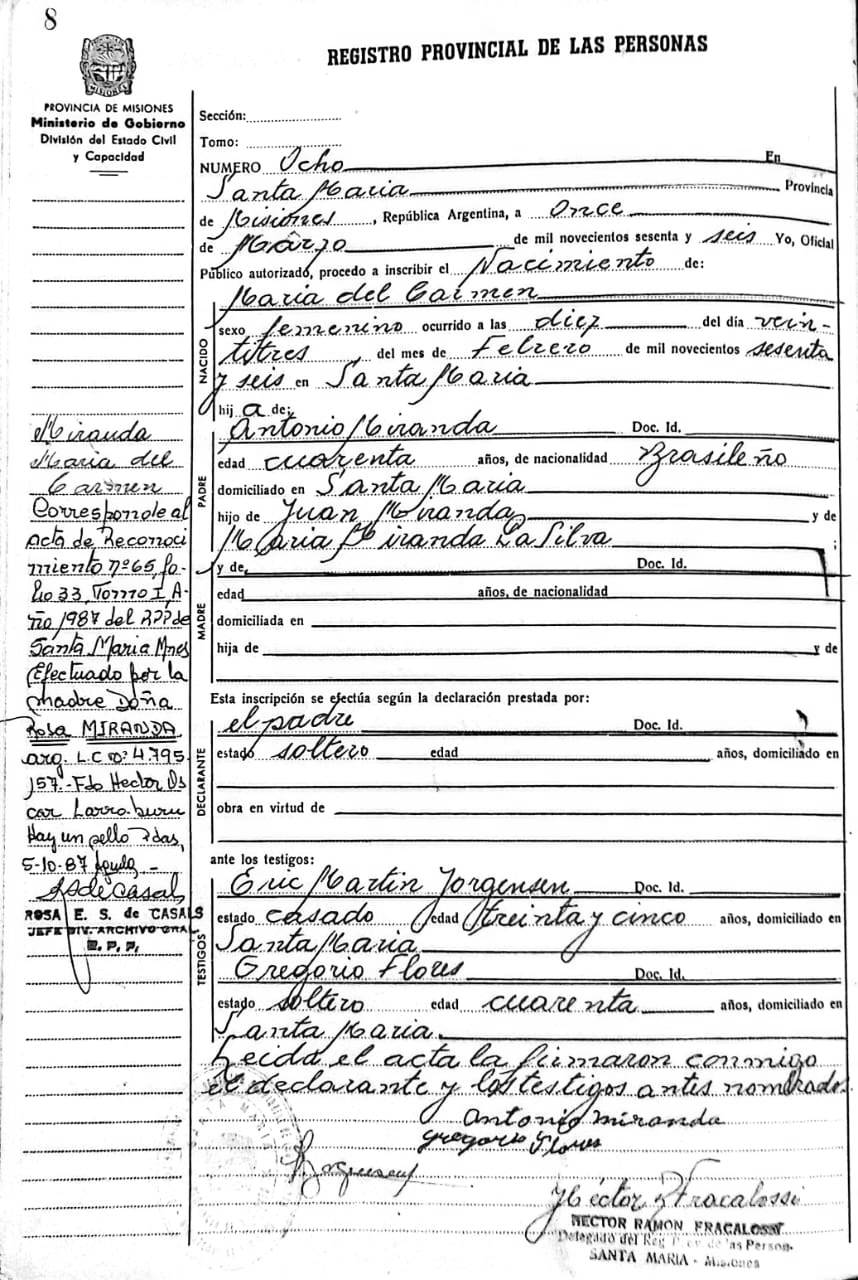 8
REGISTRO PROVINCIAL DE LAS PERSONAS
MISIONES
PROVINCIA DE MISIONES
Ministerio de Gobierno
División del Estado Civil
y Capacidad
Miranda
Maria del
Carmen
Corresponde al
Acta de Reconoci
miento nº 65, fo-
lio 33, Tomo I, A-
ño 1987 del RPP de
Santa Maria Mnes
Efectuado por la
madre Doña
Rosa MIRANDA
arg. L.C nº: 4.795.
157.- Fdo Hector Os
car Larraburu
Hay un sello Pdas,
5-10-87
RS de Casals
ROSA E. S. de CASALS
JEFE DIV. ARCHIVO GRAL.
R. P. P.
Sección:
Tomo:
NUMERO Ocho En
Santa Maria Provincia
de Misiones, República Argentina, a Once
de Marzo de mil novecientos sesenta y seis Yo, Oficial
Público autorizado, procedo a inscribir el Nacimiento de:
NACIDO
Maria del Carmen
sexo femenino ocurrido a las diez del día vein-
titres, del mes de Febrero de mil novecientos sesenta
y seis en Santa Maria
hij a de:
PADRE
Antonio Miranda Doc. Id.
edad cuarenta años, de nacionalidad Brasileño
domiciliado en Santa Maria
hijo de Juan Miranda y de
Maria Miranda La Silva ;
MADRE
y de, Doc. Id.
edad años, de nacionalidad
domiciliada en
hija de y de
Esta inscripción se efectúa según la declaración prestada por:
DECLARANTE
el padre Doc. Id.
estado soltero edad años, domiciliado en
obra en virtud de
ante los testigos:
TESTIGOS
Eric Martin Jorgensen Doc. Id.
estado casado edad treinta y cinco años, domiciliado en
Santa Maria
Gregorio Flores Doc. Id.
estado soltero edad cuarenta años, domiciliado en
Santa Maria.
Leida el acta la firmaron conmigo
el declarante y los testigos antes nombrados
Antonio miranda
Gregorio Flores
Héctor R Fracalossi
HECTOR RAMON FRACALOSSI
Delegado del Reg. Prov. de las Person.
SANTA MARIA - Misiones